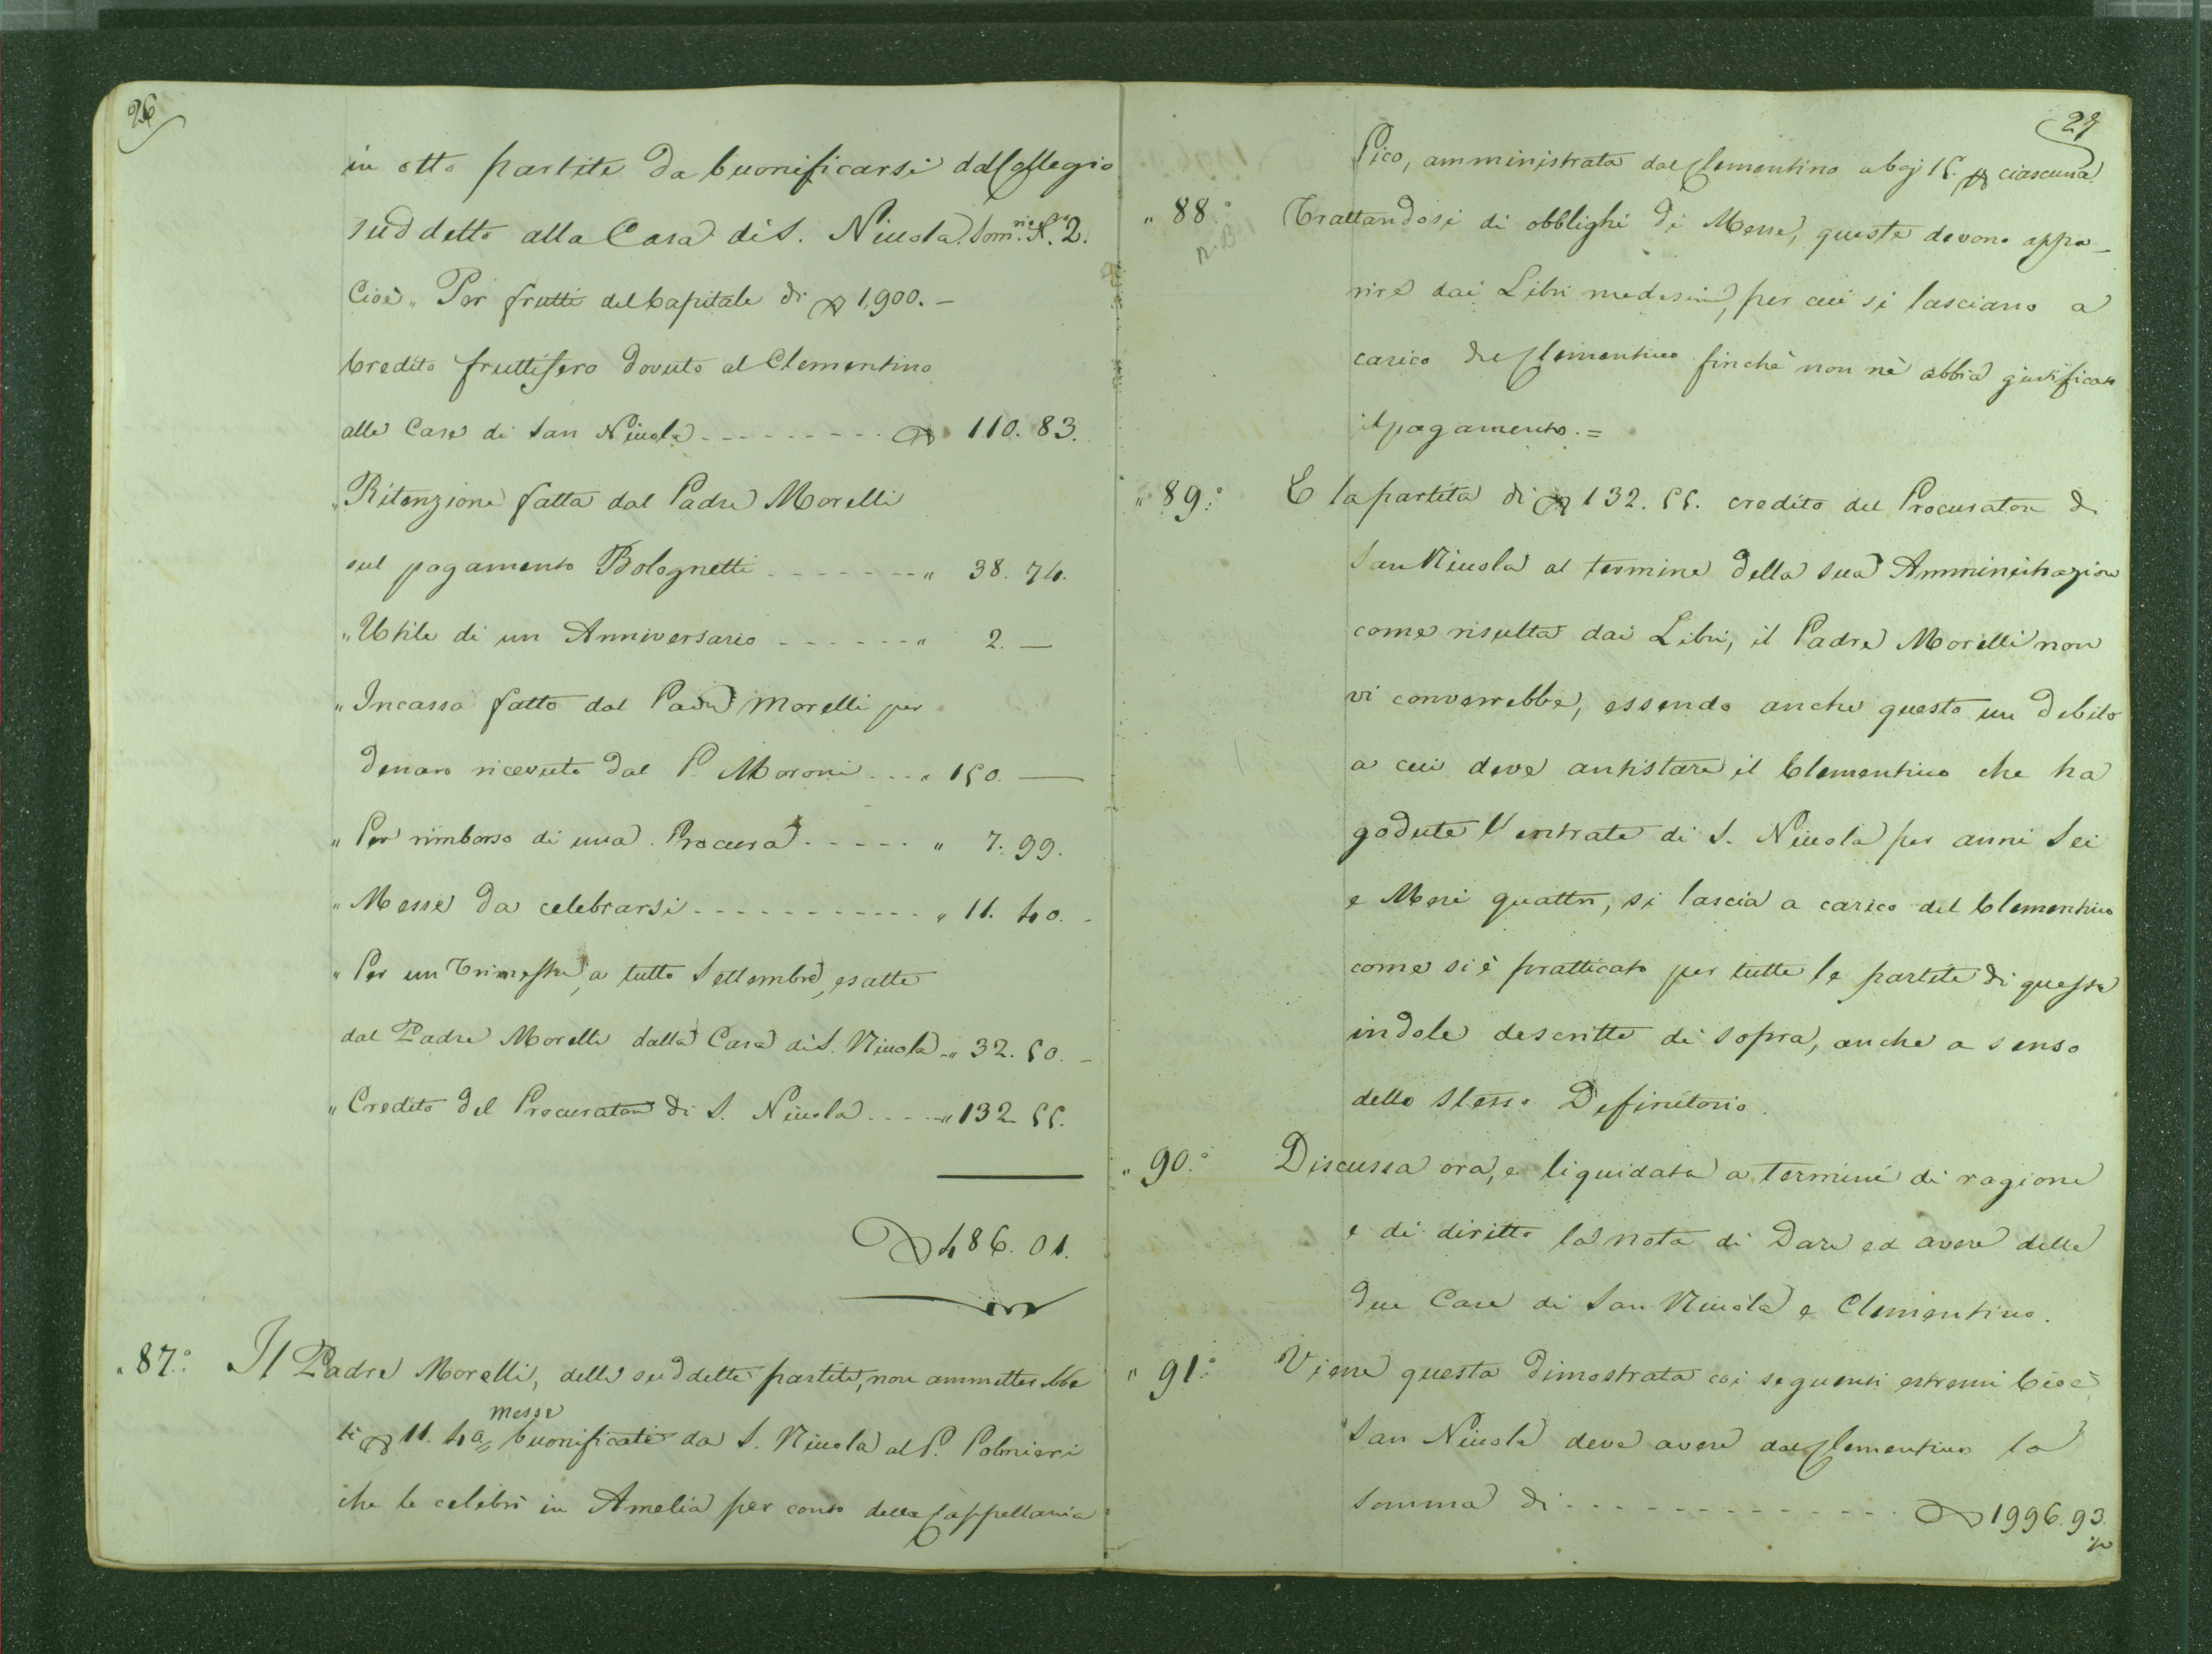 26
in otto partite da buonificarsi dal Collegio
suddetto alla Casa di S. Nicola. Somrio N.° 2.
Cioè „ Per frutti del Capitale di ∇ 1,900. —
Credito fruttifero dovuto al Clementino
alla Casa di San Nicola - - - - - - - - - ∇ 110. 83.
„ Ritenzione fatta dal Padre Morelli
sul pagamento Bolognetti - - - - - - - „ 38. 74.
„ Utile di un Anniversario - - - - - - „ 2. —
„ Incasso fatto dal Padre Morelli per
denaro ricevuto dal P. Moroni - - - „ 150. —
„ Per rimborso di una Procura - - - - - „ 7. 99.
„ Messe da celebrarsi - - - - - - - - - - - „ 11. 40. -
„ Per un Trimestre, a tutto Settembre, esatte
dal Padre Morelli dalla Casa di S. Nicola - „ 32. 50. -
„ Credito del Procuratore di S. Nicola - - - - „ 132. 55.
∇ 486. 01.
„ 87.° Il Padre Morelli, delle suddette partite, non ammetterebbe
li ∇ 11. 40 messe buonificate da S. Nicola al P. Polmieri
che le celebrò in Amelia per conto della Cappellania
27
Pico, amministrata dal Clementino a baj 15. ∇ ciascuna.
„ 88.° Trattandosi di obblighi di Messe, queste devono appa-
N.B.
rire dai Libri medesimi, per cui si lasciano a
carico del Clementino finchè non nè abbia giustificato
il pagamento. =
„ 89.° E la partita di ∇ 132. 55. credito del Procuratore di
San Nicola al termine della sua Amministrazione
come risulta dai Libri, il Padre Morelli non
vi converrebbe, essendo anche questo un debito
a cui deve antistare il Clementino che ha
godute l'entrate di S. Nicola per anni Sei
e Mesi quattro, si lascia a carico del Clementino
come si è pratticato per tutte le partite di questa
indole descritte di sopra, anche a senso
dello stesso Definitorio.
„ 90.° Discussa ora, e liquidata a termini di ragione
e di diritto la nota di Dare ed avere delle
due Case di San Nicola e Clementino.
„ 91.° Viene questa dimostrata coi seguenti estremi Cioè
San Nicola deve avere dal Clementino la
somma di - - - - - - - - - - - - - - ∇ 1996. 93.